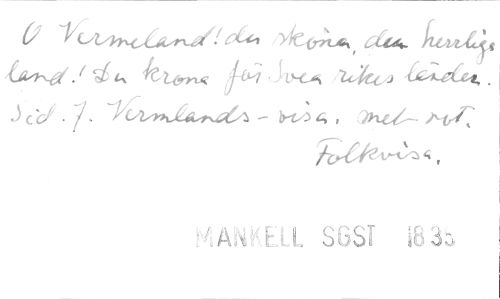 O Vermeland! du sköna, du herrliga
land! Du krona för Svea rikes länder.
Sid. 7. Vermlands-visa. met not.
Folkvisa.
MANKELL SGST 1835